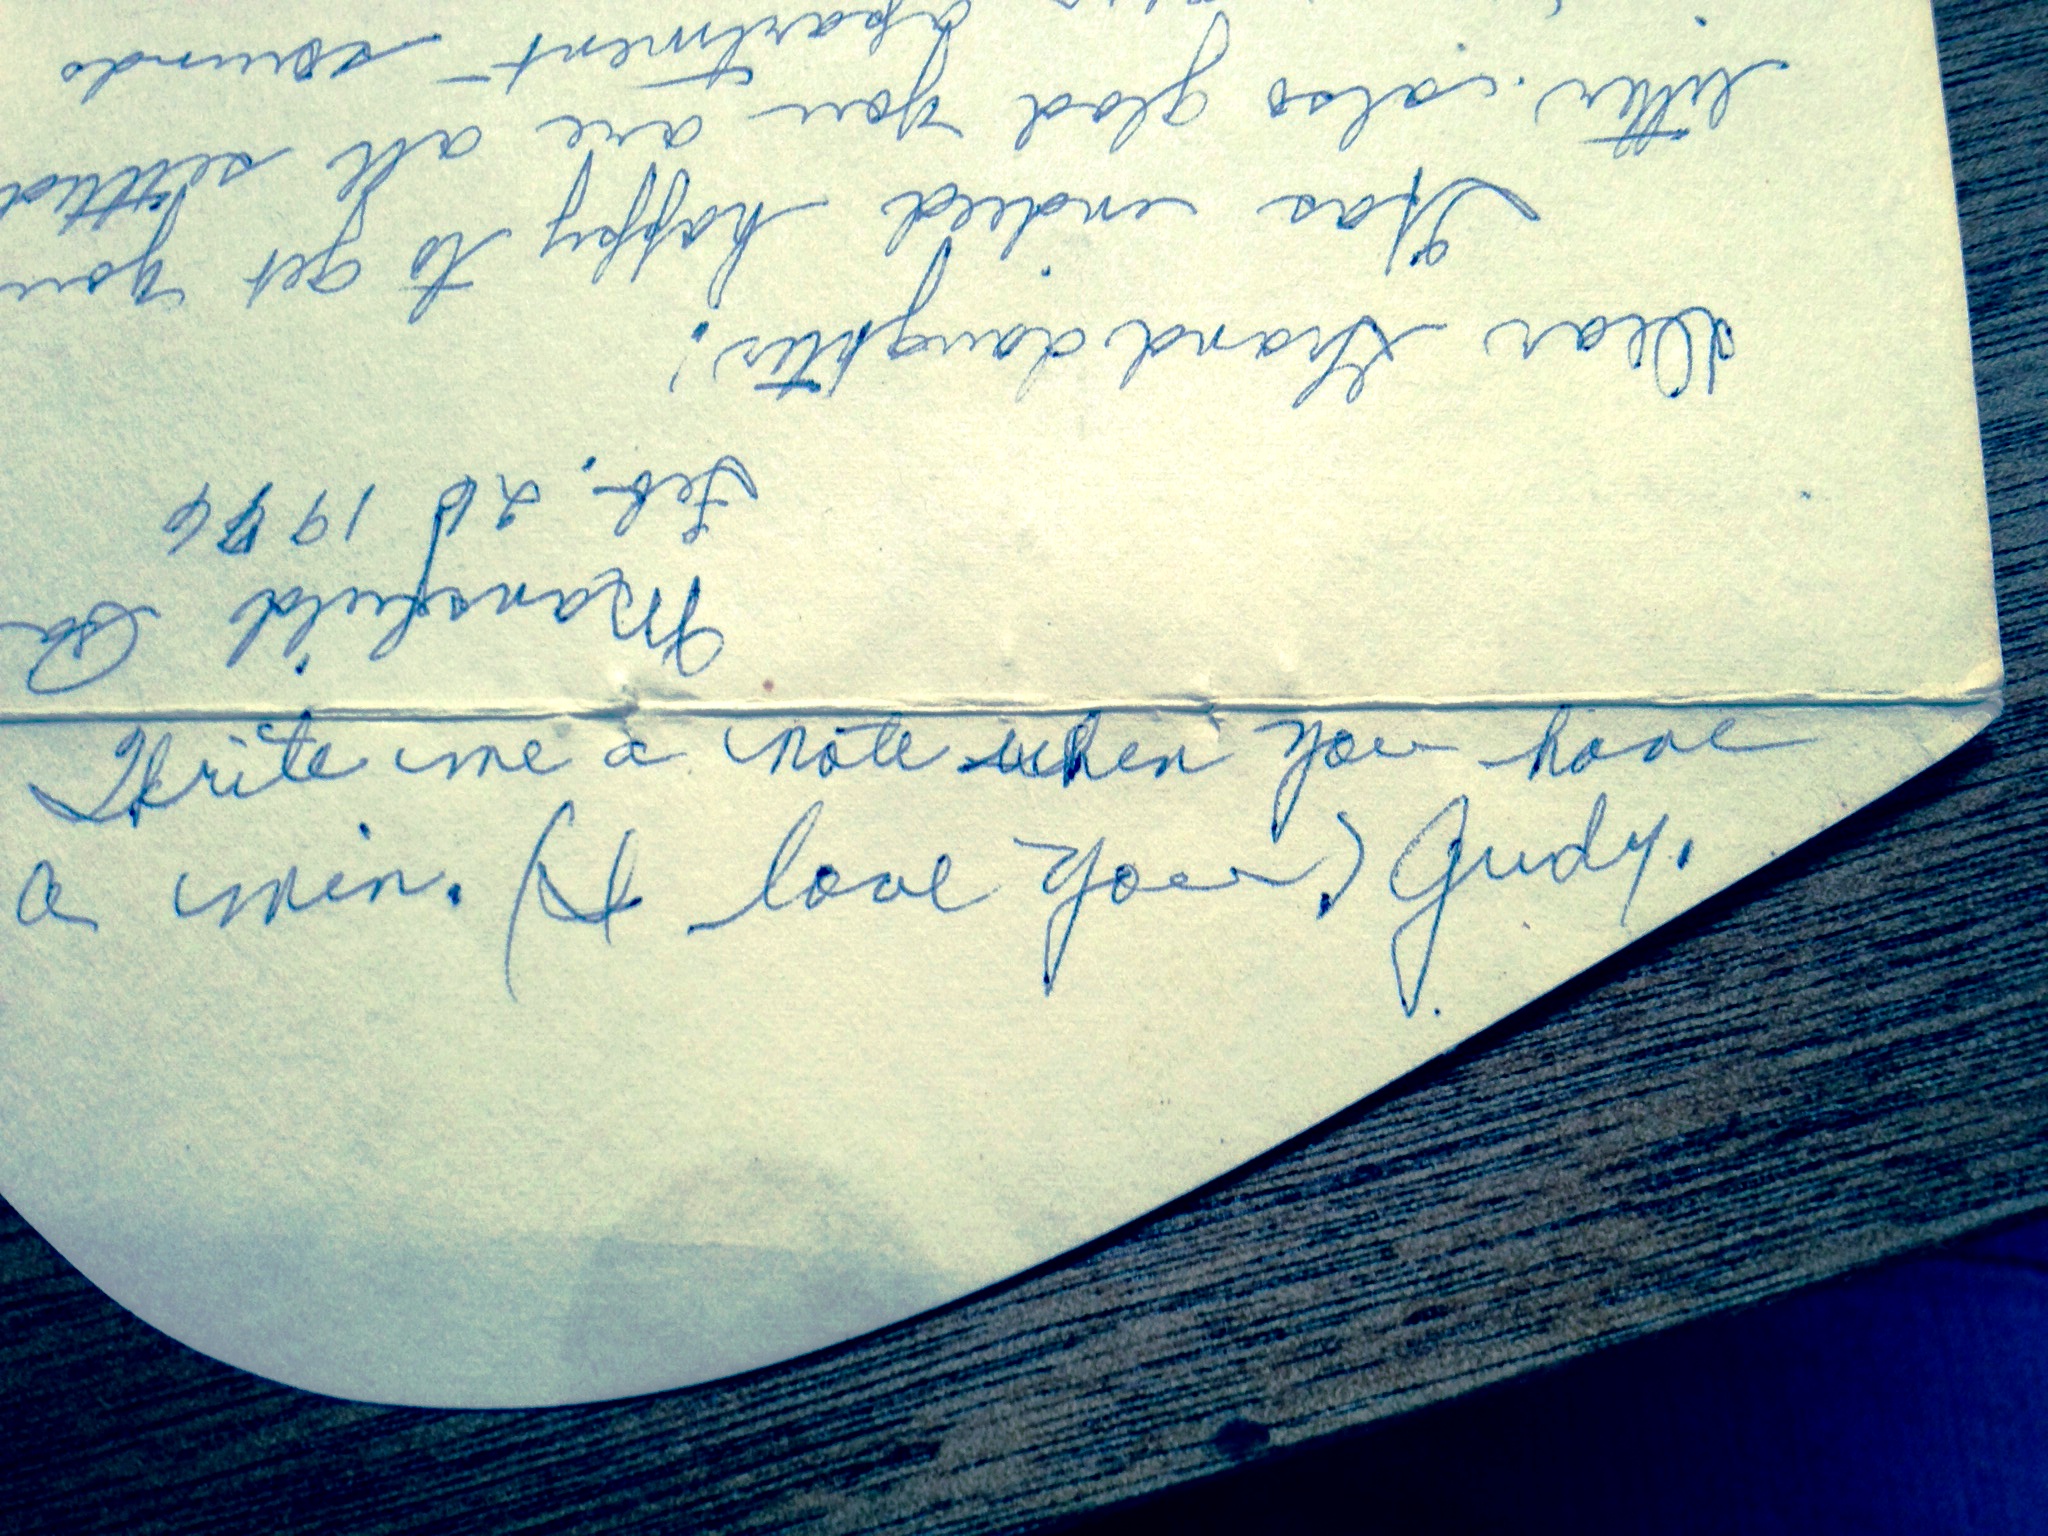 Mansfield Ga
Feb. 26 1976
Dear Granddaughter:
Was indeed happy to get you
letter. also glad you are all settled
apartment sounds
Write me a note when you have
a min. (I love you) Judy.